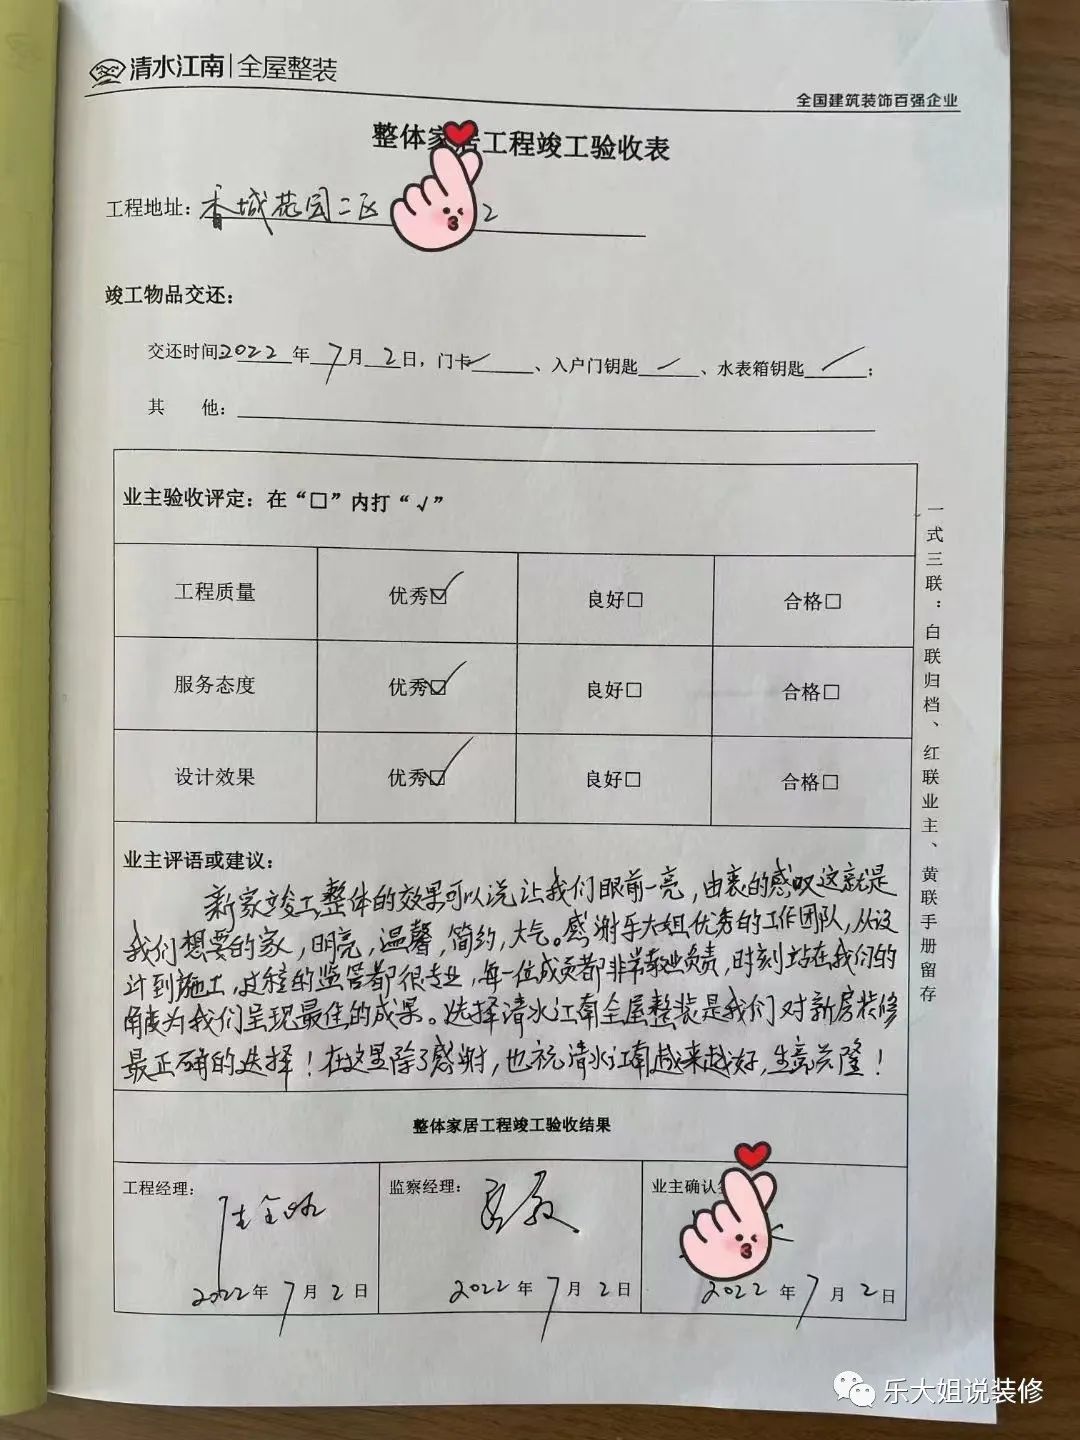 清水江南|全屋整装
全国建筑装饰百强企业
整体家居工程竣工验收表
工程地址：香城花园二区 2
竣工物品交还：
交还时间2022年7月2日，门卡✓、入户门钥匙✓、水表箱钥匙✓；
其 他：
业主验收评定：在“□”内打“√”
工程质量 优秀☑ 良好□ 合格□
服务态度 优秀☑ 良好□ 合格□
设计效果 优秀☑ 良好□ 合格□
业主评语或建议：
新家竣工,整体的效果可以说让我们眼前一亮，由衷的感叹这就是
我们想要的家，明亮，温馨，简约，大气。感谢乐大姐优秀的工作团队，从设
计到施工，过程的监管都很专业，每一位成员都非常敬业负责，时刻站在我们的
角度为我们呈现最佳的成果。选择清水江南全屋整装是我们对新房装修
最正确的选择！在这里除了感谢，也祝清水江南越来越好，生意兴隆！
整体家居工程竣工验收结果
工程经理：
2022年7月2日
监察经理：
2022年7月2日
业主确认
2022年7月2日
一式三联：白联归档、红联业主、黄联手册留存
乐大姐说装修